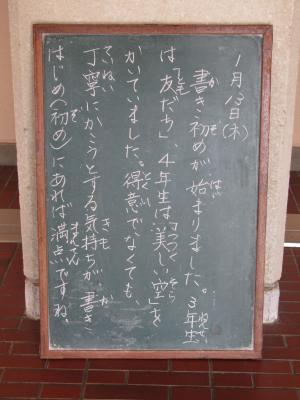 1月13日(木)
書き初めが始まりました。3年生
は「友だち」、4年生は「美しい空」を
かいていました。得意でなくても、
丁寧にかこうとする気持ちが書き
はじめ(初め)にあれば満点ですね。